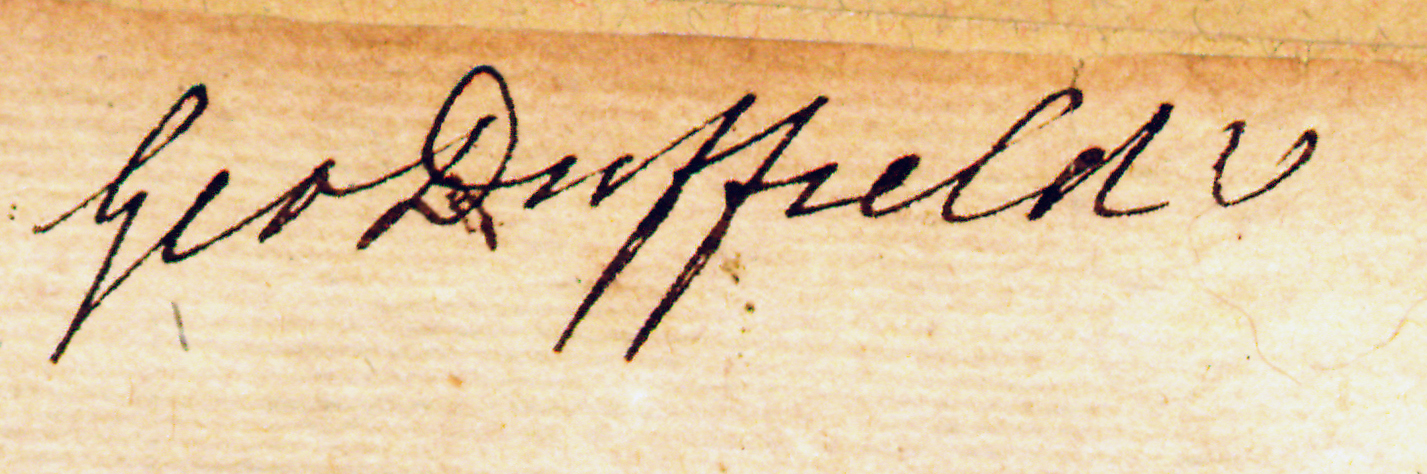 Geo Duffield